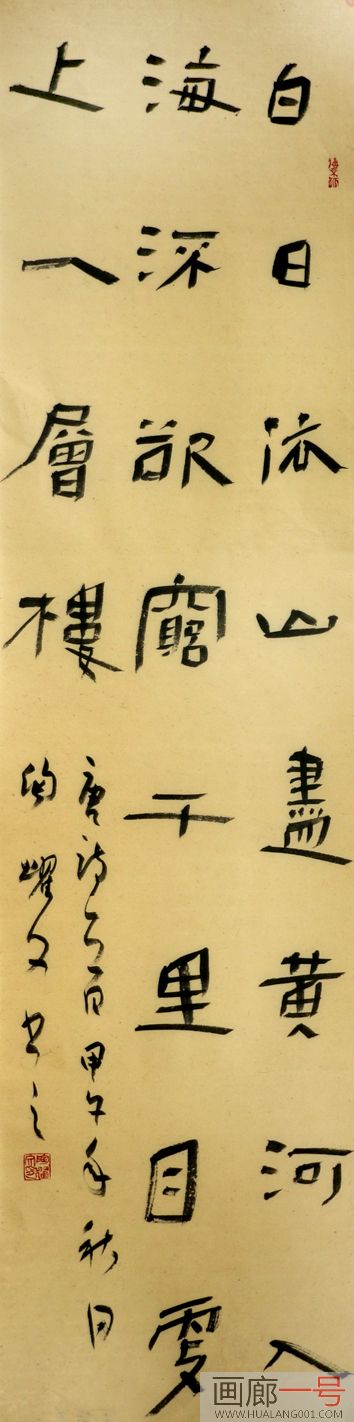 白日依山盡黄河入
海流欲窮千里目更
上一層樓
唐詩一首甲午年秋日
陶耀文书之
画廊一号
WWW.HUALANG001.COM